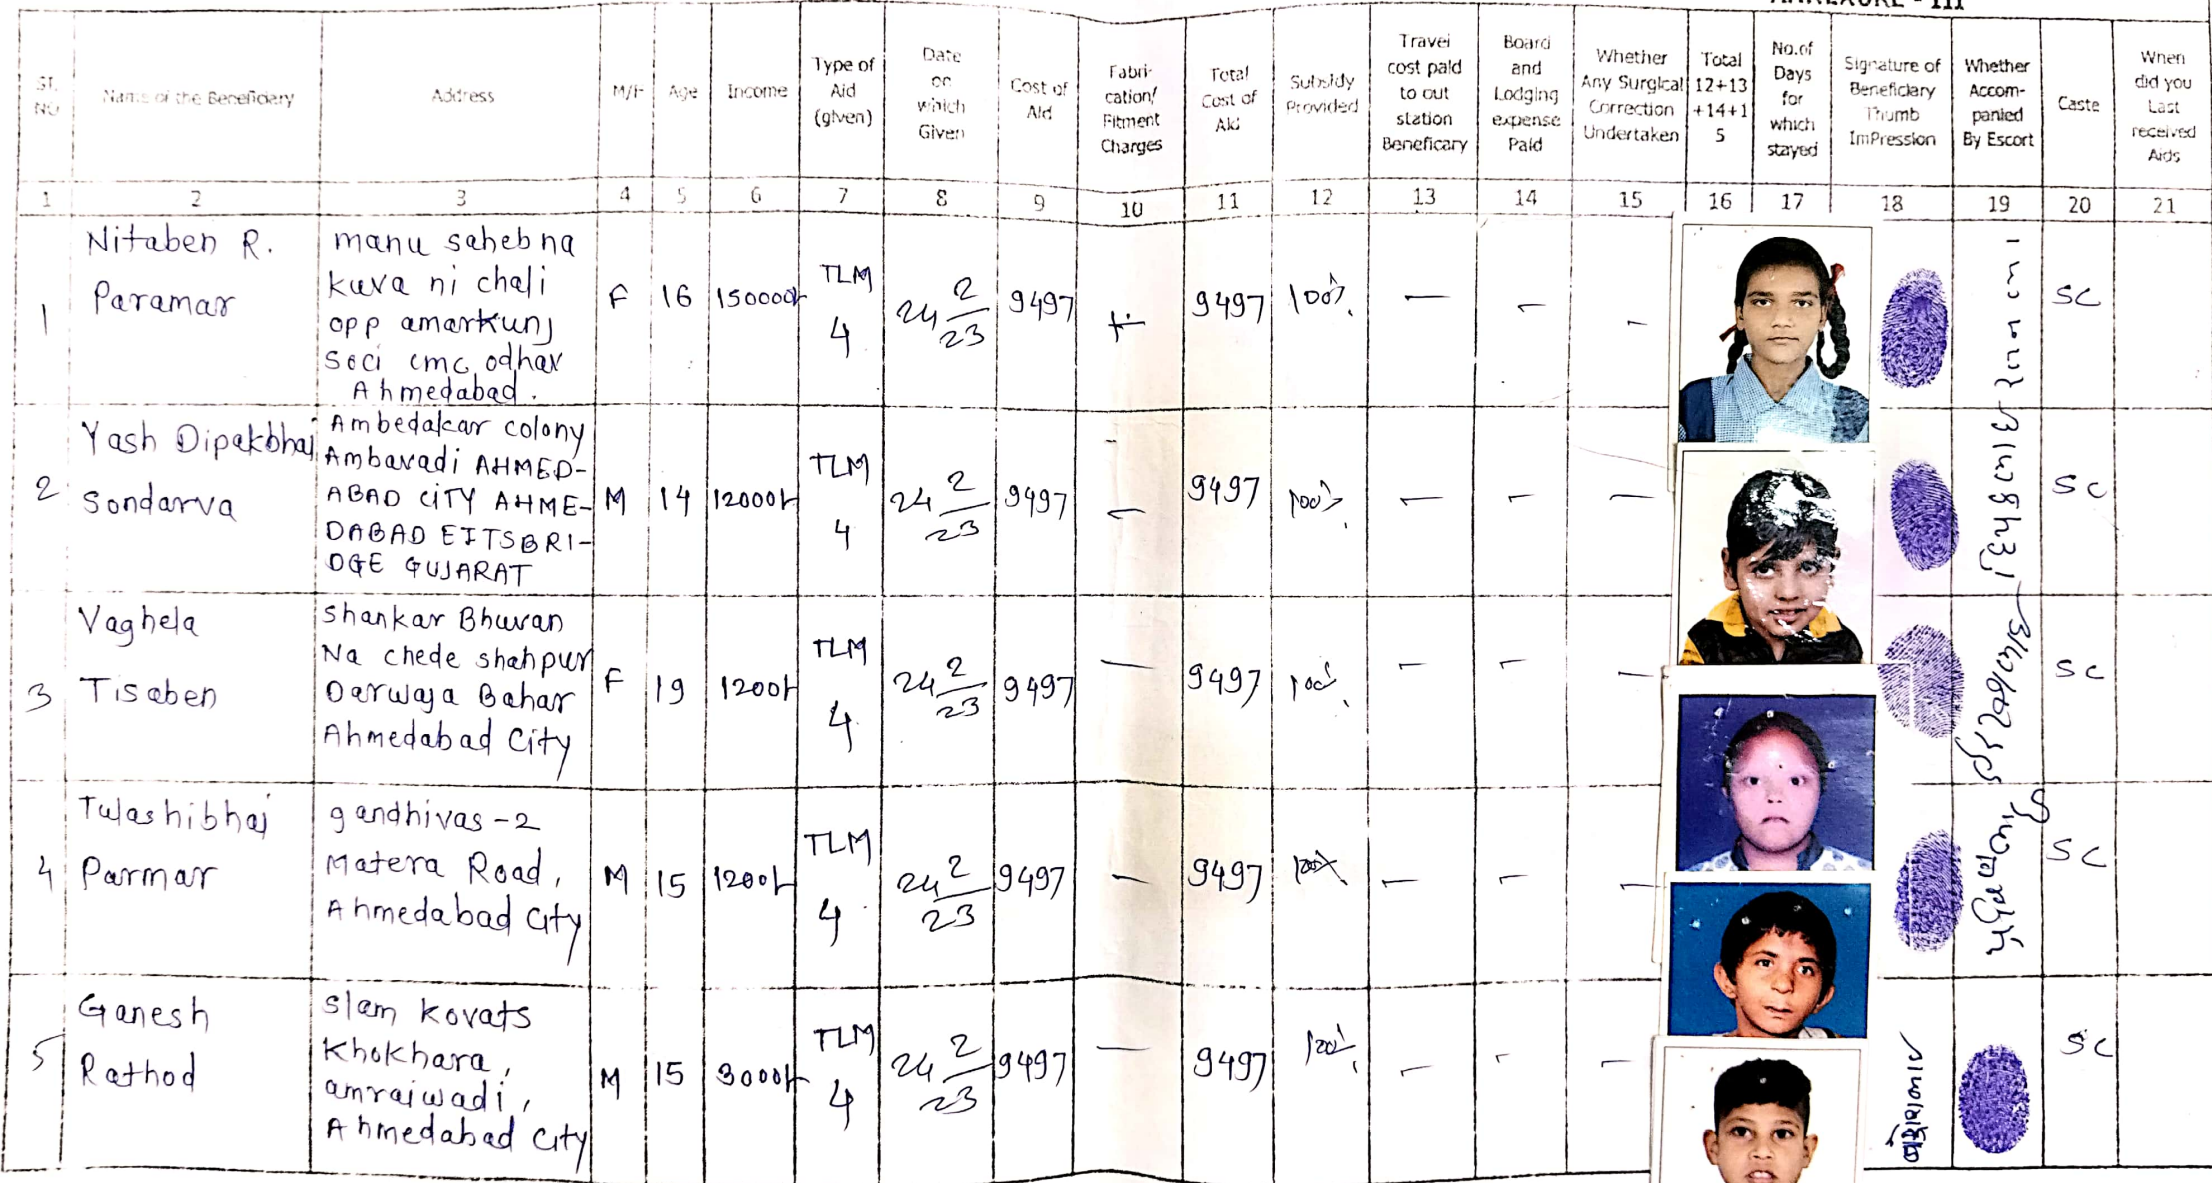 ANNEXURE - III
Sr. NO
Name of the Beneficiary
Address
M/F
Age
Income
Type of
Aid
(given)
Date
on
which
Given
Cost of
Aid
Fabri-
cation/
Fitment
Charges
Total
Cost of
Aid
Subsidy
Provided
Travel
cost paid
to out
station
Beneficary
Board
and
Lodging
expense
Paid
Whether
Any Surgical
Correction
Undertaken
Total
12+13
+14+1
5
No.of
Days
for
which
stayed
Signature of
Beneficiary
Thumb
ImPression
Whether
Accom-
panied
By Escort
Caste
When
did you
Last
received
Aids
1 2 3 4 5 6 7 8 9 10 11 12 13 14 15 16 17 18 19 20 21
1
Nitaben R.
Paramar
manu saheb na
kuva ni chali
opp amarkunj
Soci cmc odhav
Ahmedabad.
F 16 150000/-
TLM
4
24 2/23
9497
9497 100%
SC
2
Yash Dipakbhai
Sondarva
Ambedakar colony
Ambavadi AHMED-
ABAD CITY AHME-
DABAD EITSBRI-
DGE GUJARAT
M 14 12000/-
TLM
4
24 2/23
9497
9497 100%
SC
3
Vaghela
Tisaben
Shankar Bhuvan
Na chede shahpur
Darwaja Bahar
Ahmedabad City
F 19 1200/-
TLM
4
24 2/23
9497
9497 100%
SC
4
Tulashibhai
Parmar
gandhivas-2
Matera Road,
Ahmedabad City
M 15 1200/-
TLM
4
24 2/23
9497
9497 100%
SC
5
Ganesh
Rathod
Slam kovats
Khokhara,
amraiwadi,
Ahmedabad City
M 15 3000/-
TLM
4
24 2/23
9497
9497 100%
SC